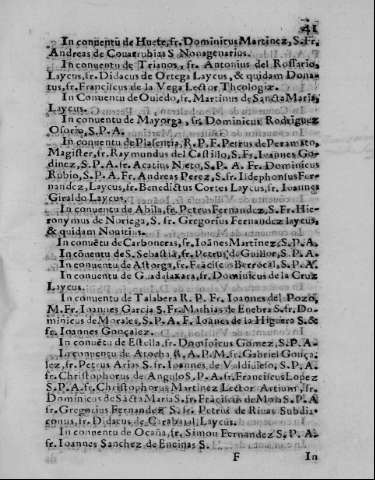 41
In conuentu de Huete, fr. Dominicus Martinez, S. Fr.
Andreas de Couarrubias S. Nonagenarius.
In conuentu de Trianos, fr. Antonius del Rossario,
Laycus, fr. Didacus de Ortega Laycus, & quidam Dona-
tus, fr. Franciscus de la Vega Lector Theologiæ.
In Conuentu de Ouiedo, fr. Martinus de Sancta Maria,
Laycus.
In conuentu de Mayorga, fr. Dominicus Rodriguez
Osorio, S. P. A.
In conuentu de Plasentia, R. P. F. Petrus de Peramato,
Magister, fr. Raymundus del Castillo, S. Fr. Ioannes Go-
dinez, S. P. A. fr. Acatius Nieto, S. P. A. Fr. Dominicus
Rubio, S. P. A. Fr. Andreas Perez, S. fr. Ildephonsus Fer-
nandez, Laycus, fr. Benedictus Cortes Laycus, fr. Ioannes
Giraldo Laycus.
In conuentu de Abila, fr. Petrus Fernandez, S. Fr. Hie-
ronymus de Noriega, S. fr. Gregorius Fernandez laycus,
& quidam Nouitius.
In conuẽtu de Carboneras, fr. Ioãnes Martinez, S. P. A.
In cõuentu de S. Sebastiã, fr. Petrus de Guillor, S. P. A.
In conuentu de Astorga, fr. Frãciscus Berrocal, S. P. A.
In conuentu de Guadalaxara, fr. Dominicus de la Cruz
Laycus.
In conuentu de Talabera R. P. Fr. Ioannes del Pozo,
M. Fr. Ioannes Garcia S. Fr. Mathias de Enebra S. fr. Do-
minicus de Morales, S. P. A. F. Ioannes de la Higuera S. &
fr. Ioannes Gonçalez.
In conuẽtu de Estella, fr. Dominicus Gomez, S. P. A.
In conuentu de Atocha R. A. P. M. fr. Gabriel Gonça-
lez, fr. Petrus Arias S. fr. Ioannes de Valdiuiesso, S. P. A.
fr. Christophorus de Angulo S. P. A. fr. Franciscus Lopez
S. P. A. fr. Christophorus Martinez Lector Artium, fr.
Dominicus de Sãcta Maria S. fr. Frãciscus de Mora S. P. A
fr. Gregorius Fernandez S. fr. Petrus de Riuas Subdia-
conus, fr. Didacus de Carabajal, Laycus.
In conuentu de Ocaña, fr. Simon Fernandez S. P. A.
fr. Ioannes Sanchez de Encinas S.
F In